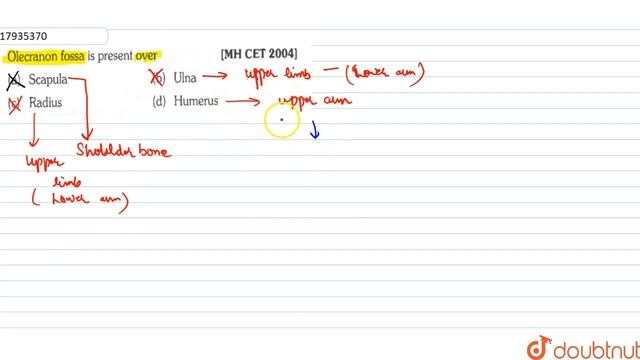 17935370
Olecranon fossa is present over [MH CET 2004]
(a) Scapula (b) Ulna → upper limb – (Lower arm)
(c) Radius (d) Humerus → upper arm
upper Shoulder bone
limb
(Lower arm)
doubtnut